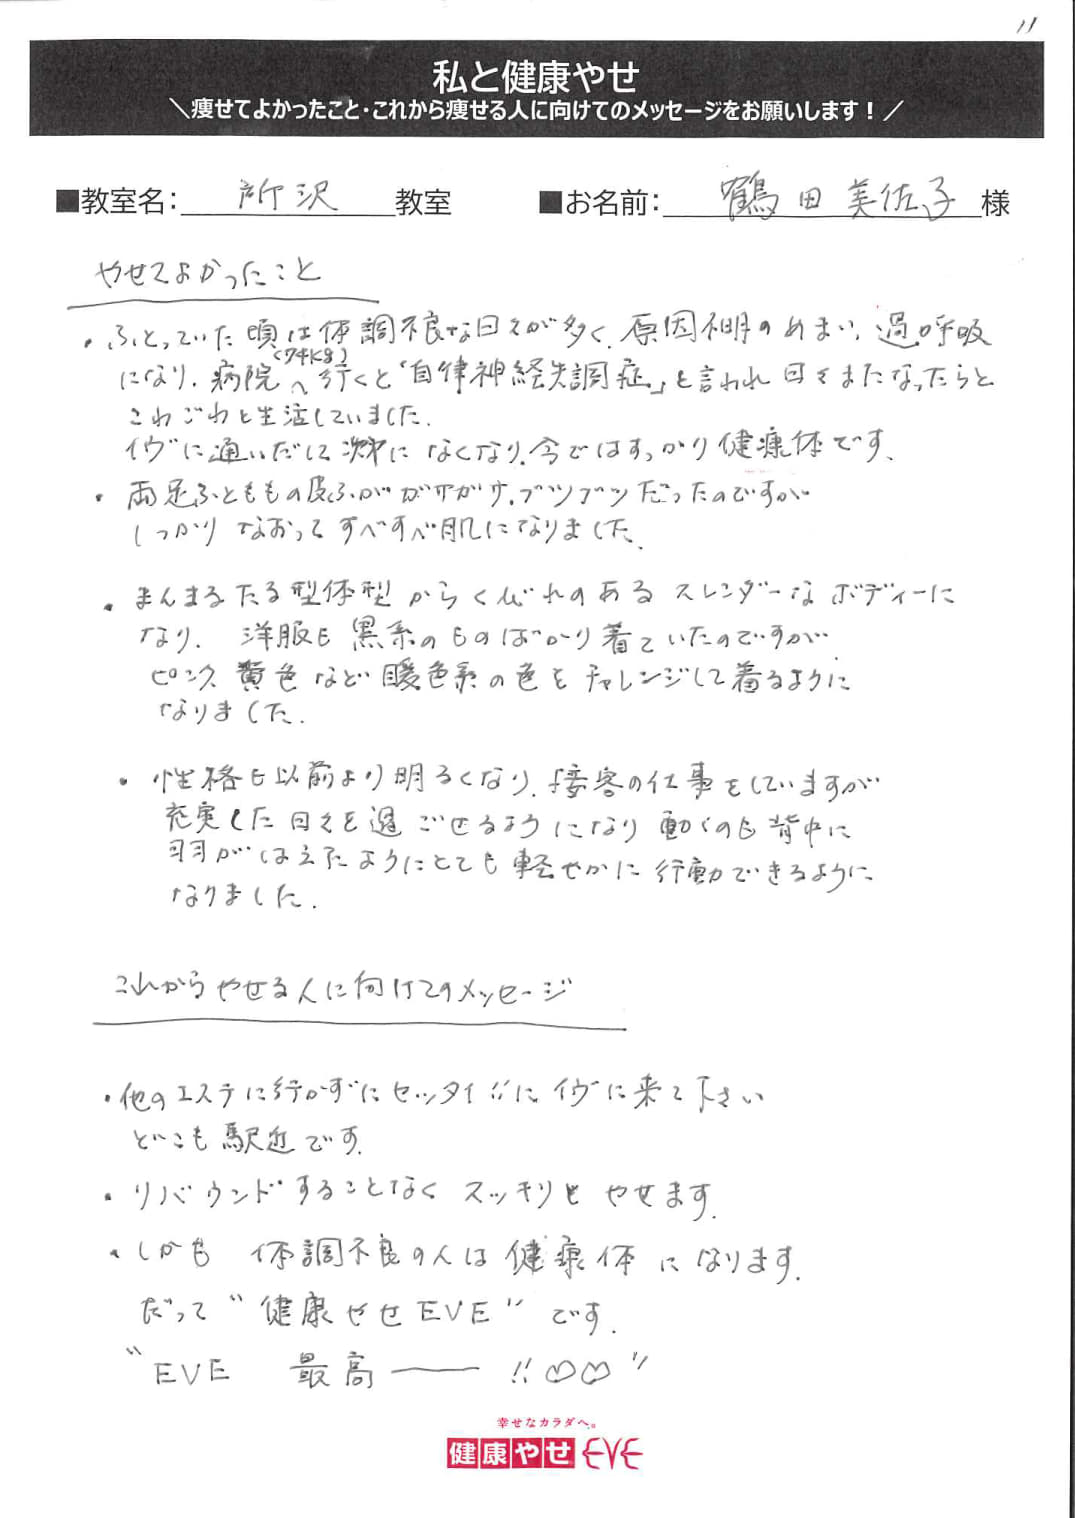 11
私と健康やせ
＼痩せてよかったこと・これから痩せる人に向けてのメッセージをお願いします！／
■教室名： 所沢 教室 ■お名前： 鶴田 美佐子 様
やせてよかったこと
・ふとっていた頃は体調不良な日々が多く、原因不明のめまい、過呼吸
(74kg)
になり、病院へ行くと「自律神経失調症」と言われ 日々またなったらと
こわごわと生活していました。
イヴに通いだして次第になくなり、今ではすっかり健康体です。
・両足ふとももの皮ふがガサガサ、ブツブツだったのですが
しっかりなおってすべすべ肌になりました。
・まんまるたる型体型からくびれのあるスレンダーなボディーに
なり、洋服も黒系のものばかり着ていたのですが
ピンク、黄色など暖色系の色をチャレンジして着るように
なりました。
・性格も以前より明るくなり、接客の仕事をしていますが
充実した日々を過ごせるようになり 動くのも背中に
羽がはえたようにとても軽やかに行動できるように
なりました。
これからやせる人に向けてのメッセージ
・他のエステに行かずにゼッタイ!!に、イヴに来て下さい
どこも駅近です。
・リバウンドすることなくスッキリとやせます。
・しかも 体調不良の人は健康体になります。
だって〝健康やせEVE〟です。
〝EVE 最高――!!♡♡〟
幸せなカラダへ。
健康やせ EVE